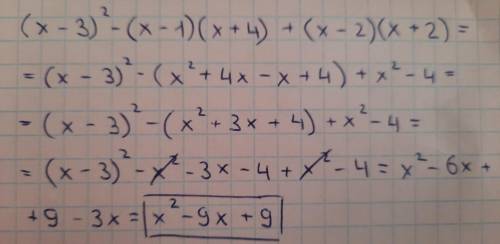 (x - 3)² - (x - 1)(x + 4) + (x - 2)(x + 2) =
= (x - 3)² - (x² + 4x - x + 4) + x² - 4 =
= (x - 3)² - (x² + 3x + 4) + x² - 4 =
= (x - 3)² - x² - 3x - 4 + x² - 4 = x² - 6x +
+ 9 - 3x = x² - 9x + 9